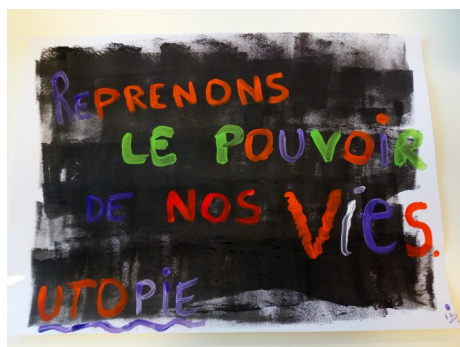 REPRENONS
LE POUVOiR
DE NOS ViES.
UTOPiE